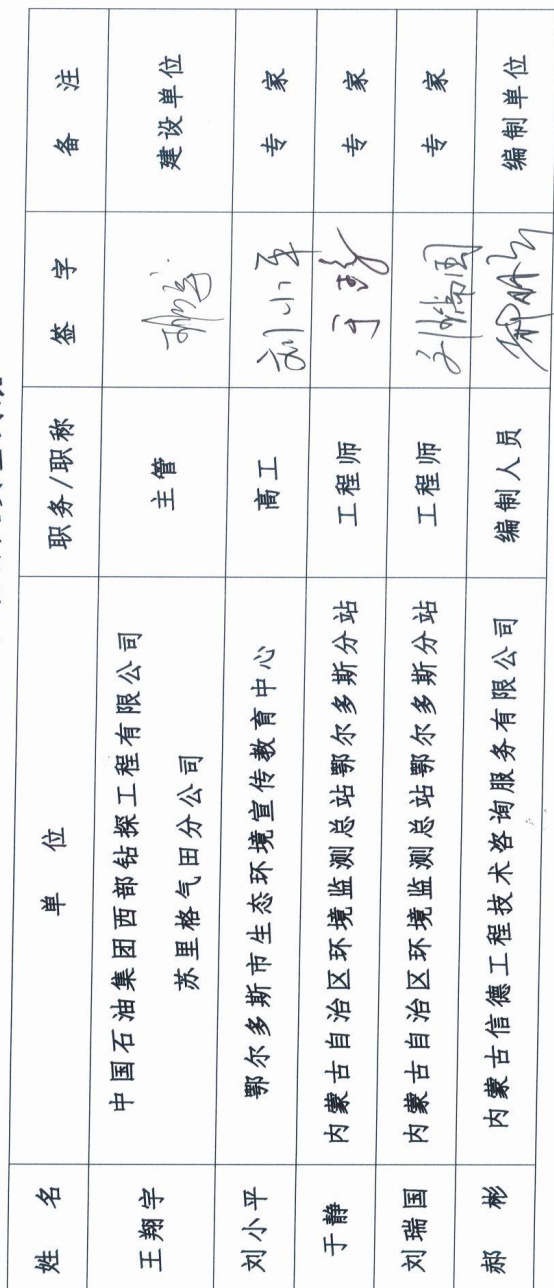 姓 名 单 位 职务/职称 签 字 备 注
王翔宇 中国石油集团西部钻探工程有限公司 主管 建设单位
苏里格气田分公司
刘小平 鄂尔多斯市生态环境宣传教育中心 高工 刘小平 专 家
于静 内蒙古自治区环境监测总站鄂尔多斯分站 工程师 于静 专 家
刘瑞国 内蒙古自治区环境监测总站鄂尔多斯分站 工程师 刘瑞国 专 家
郝 彬 内蒙古信德工程技术咨询服务有限公司 编制人员 编制单位